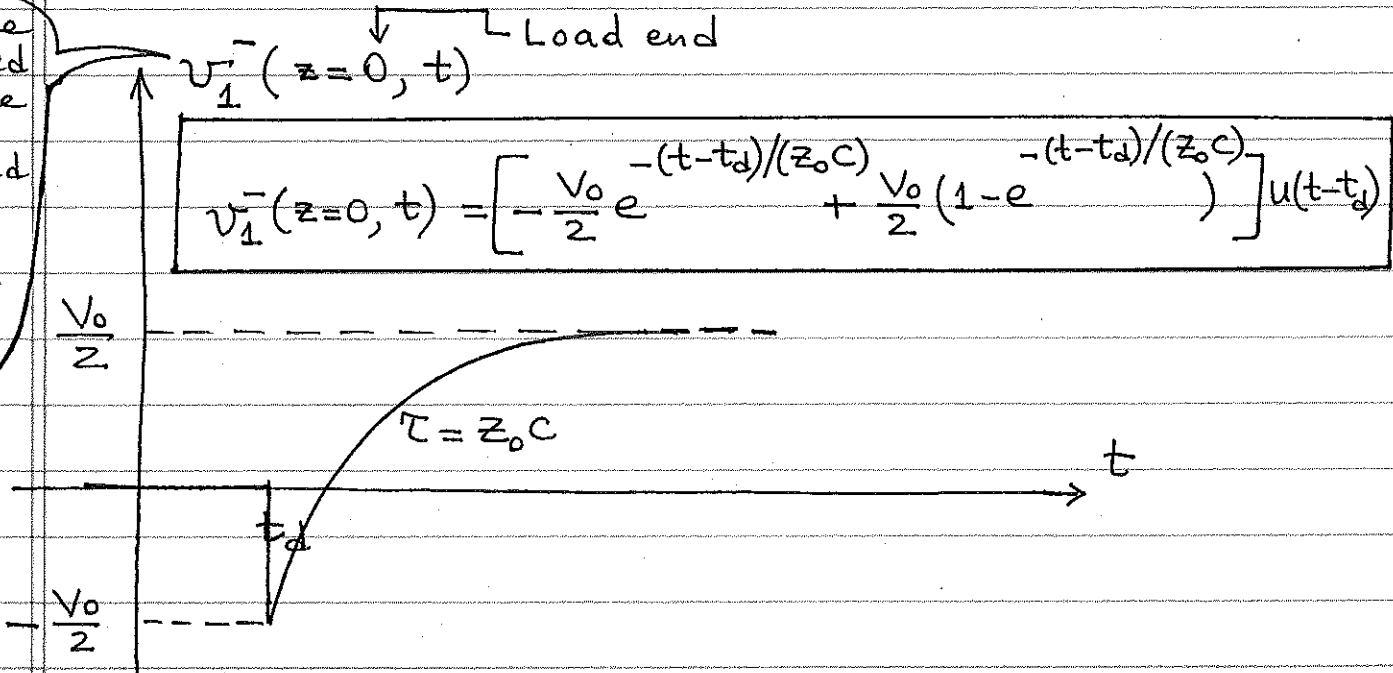 e
Load end
ed
v₁⁻(z=0, t)
e
d
v₁⁻(z=0, t) = [-V₀/2 e^(-(t-t_d)/(Z₀C)) + V₀/2 (1-e^(-(t-t_d)/(Z₀C)))] u(t-t_d)
V₀/2
τ = Z₀C
t
t_d
-V₀/2